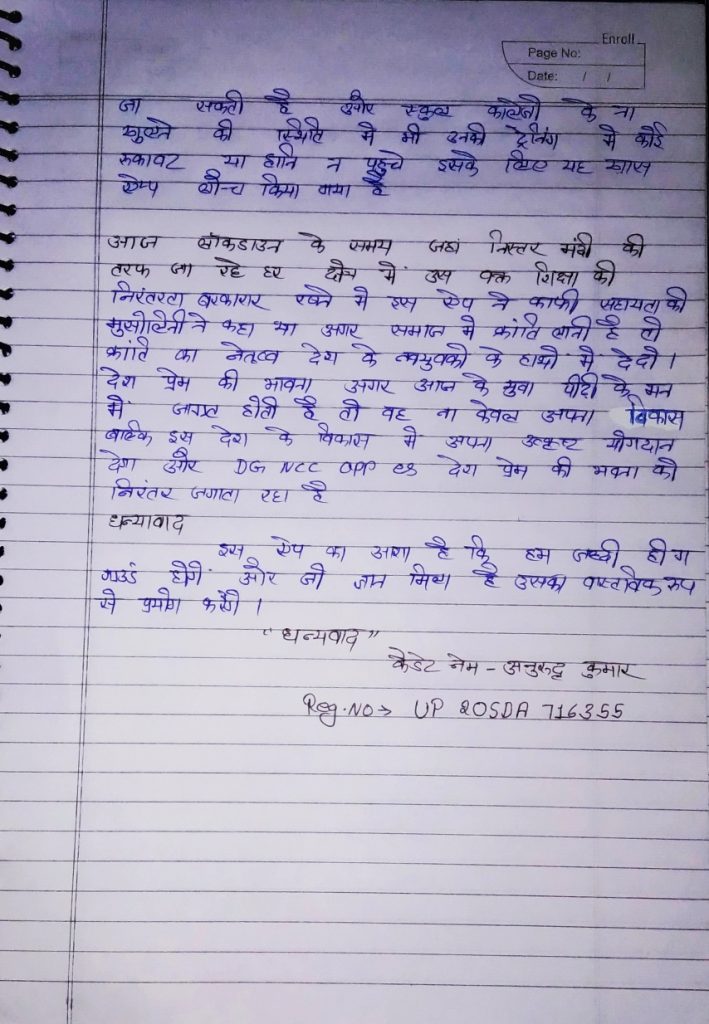 Enroll
Page No:
Date: / /
जा सकती है और स्कूल कॉलेजो के ना
खुलने की स्थिति मे भी उनकी ट्रेनिंग मे कोई
रुकावट या हानि न पहुचे इसके लिए यह खास
ऐप्प लॉन्च किया गया है
आज लॉकडाउन के समय जहां निरन्तर मंदी की
तरफ जा रहे हर क्षेत्र में उस वक्त शिक्षा की
निरंतरता बरकारार रखने मे इस ऐप ने काफी सहायता की
मुसोलिनी ने कहा था अगर समाज मे क्रांति लानी है तो
क्रांति का नेतृत्व देश के नवयुवको के हाथो में देदो ।
देश प्रेम की भावना अगर आज के युवा पीढी के मन
में जाग्रत होती है तो वह ना केवल अपना विकास
बल्कि इस देश के विकास मे अपना उत्कृष्ट योगदान
देगा और DG NCC OPP देश प्रेम की भवना को
निरंतर जगाता रहा है
धन्यावाद
इस ऐप का आशा है कि हम जल्दी ही
ग्राउंड होगें और जो ज्ञान मिला है उसका वास्तविक रूप
से प्रयोग करेंगे ।
"धन्यवाद"
कैडेट नेम - अनुरुद्ध कुमार
Reg.NO→ UP 20SDA 716355